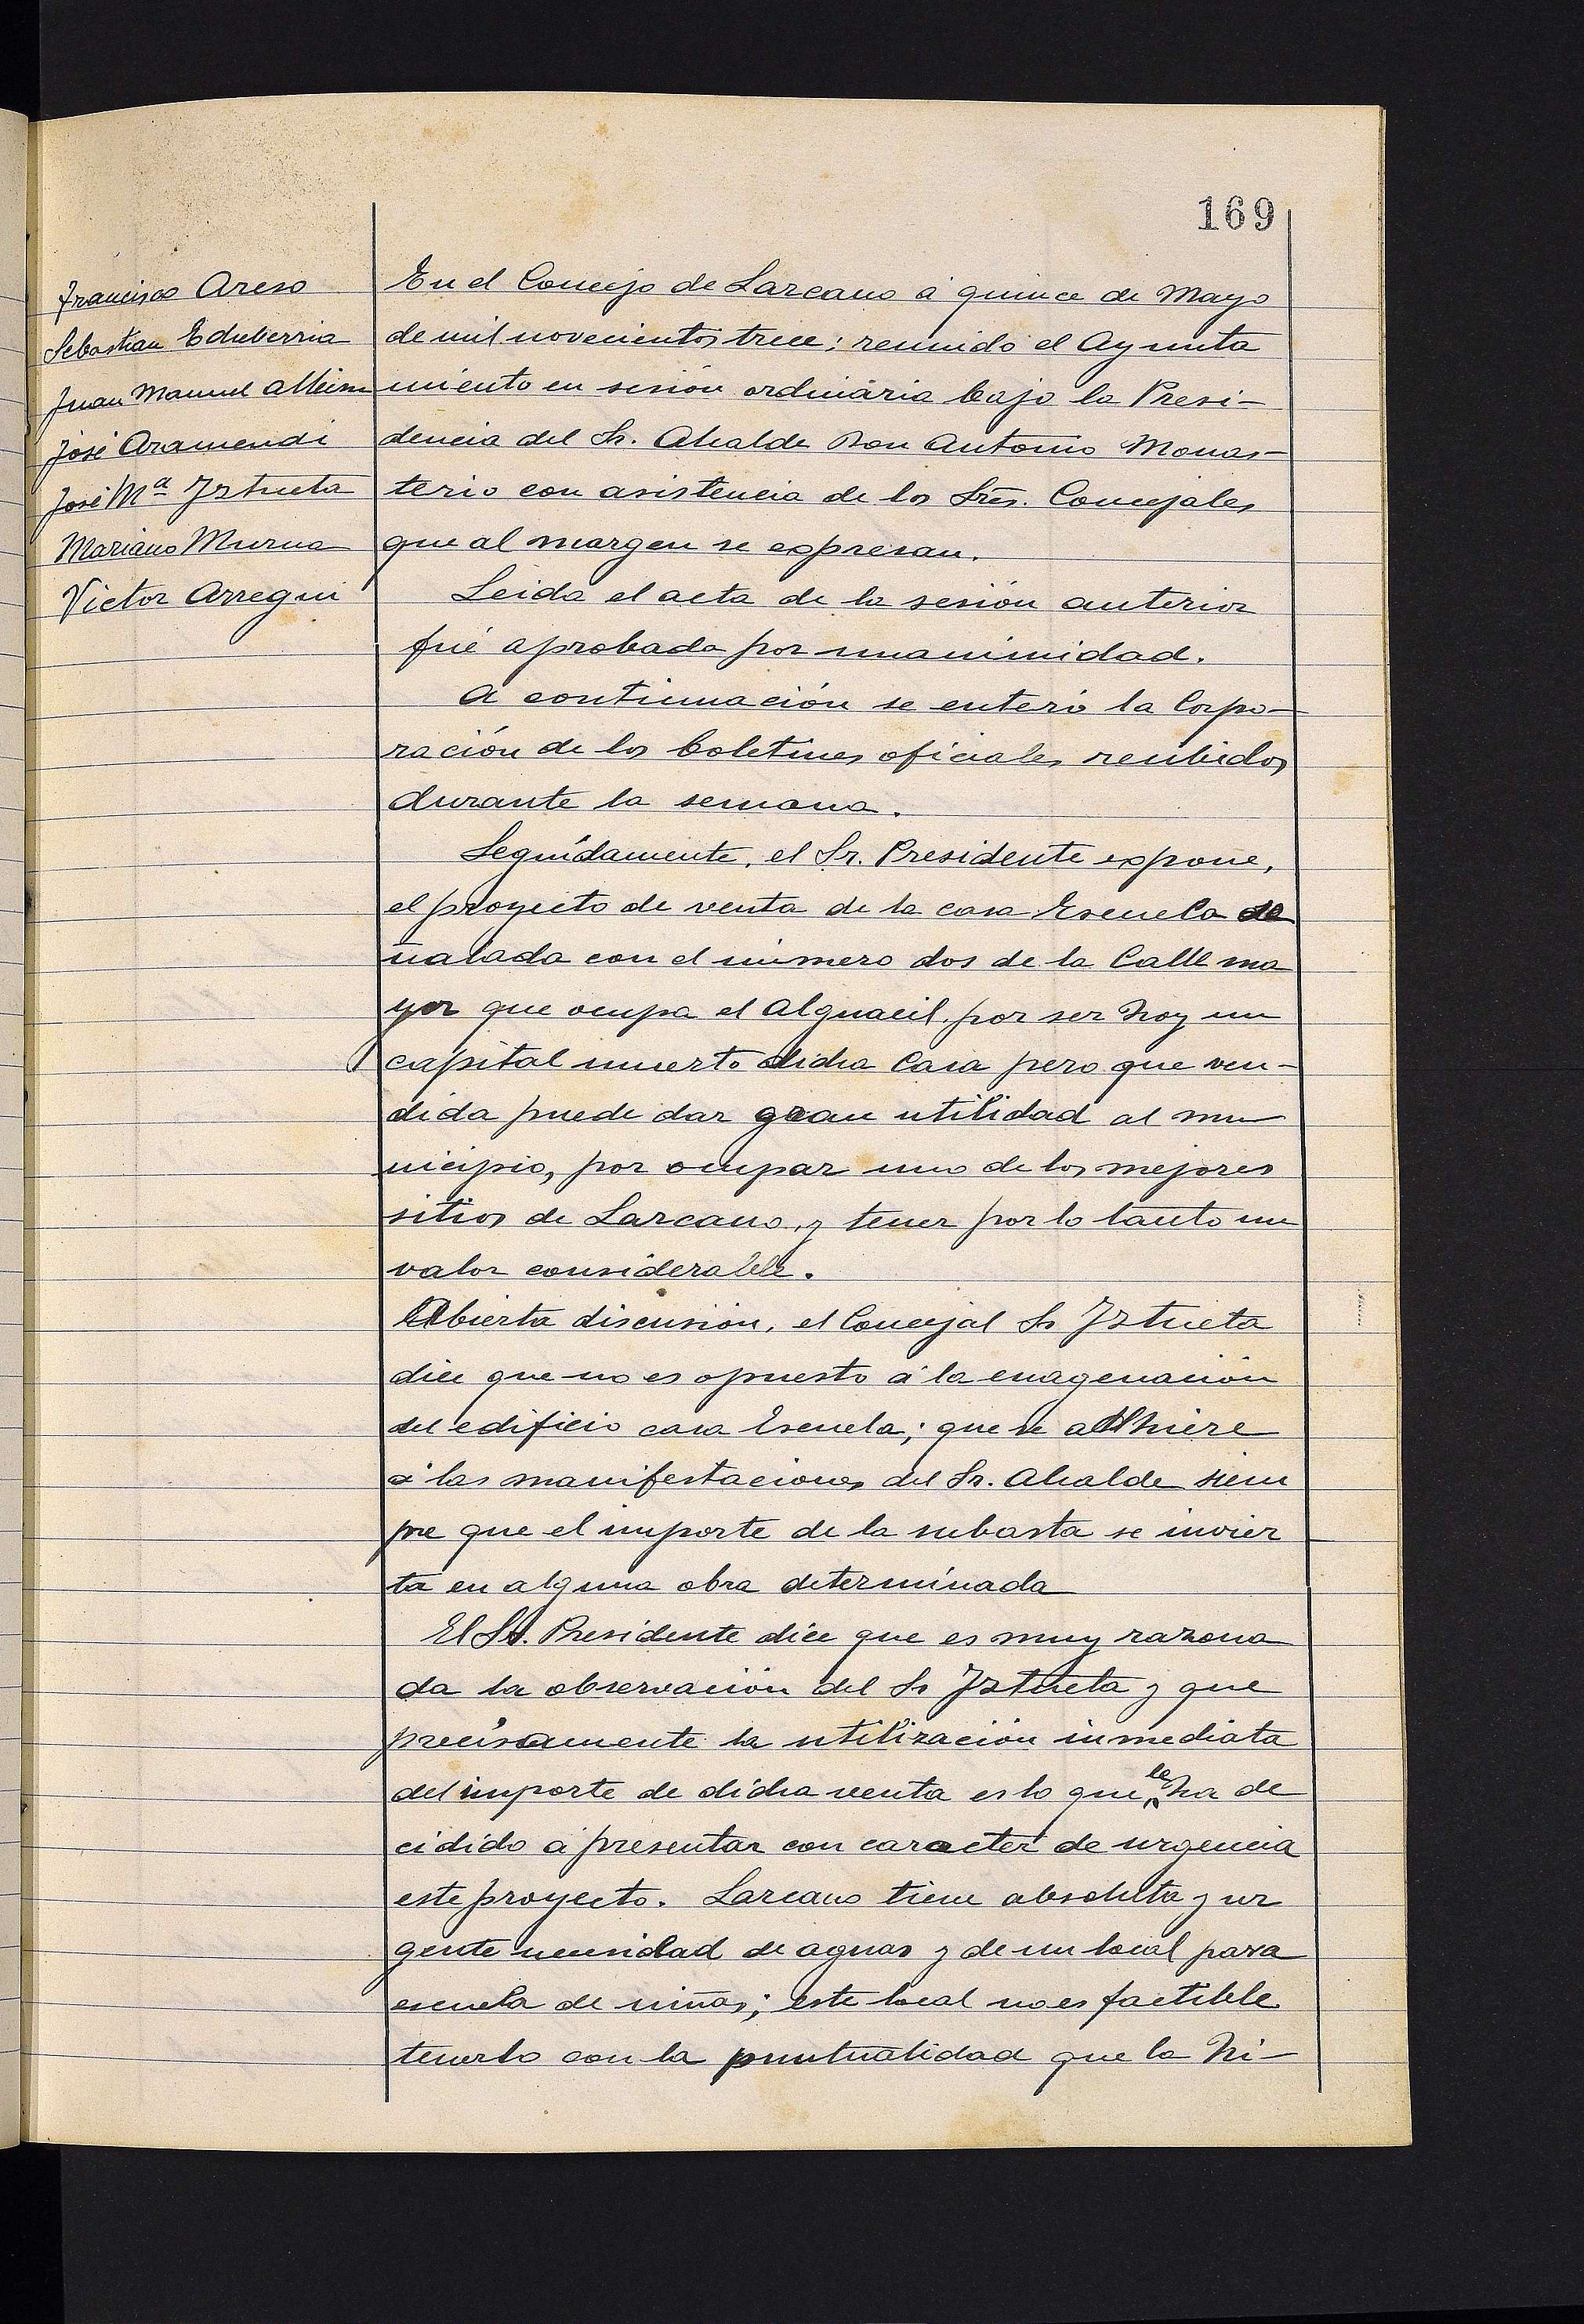 169
Francisco Areso
Sebastian Echeberria
Juan Manuel
José Aramendi
José Mª Iztueta
Mariano Murua
Victor Arregui
En el Concejo de Lazcano á quince de Mayo
de mil novecientos trece; reunido el Ayunta
miento en sesión ordinária bajo la Presi-
dencia del Sr. Alcalde Don Antonio Monas-
terio con asistencia de los Srēs. Concejales
que al margen se expresan.
Leida el acta de la sesión anterior
fué aprobada por unanimidad.
A continuación se enteró la Corpo-
ración de los boletines oficiales recibidos
durante la semana.
Seguídamente, el Sr. Presidente expone,
el proyecto de venta de la casa Escuela
ñalada con el número dos de la Calle ma
yor que ocupa el Alguacil, por ser hoy un
capital muerto dicha Casa pero que ven-
dida puede dar gran utilidad al mu
nicipio, por ocupar uno de los mejores
sitios de Lazcano, y tener por lo tanto un
valor considerable.
Abierta discusión, el Concejal Sr Iztueta
dice que no es opuesto á la enagenación
del edificio casa Escuela; que se adhiere
á las manifestaciones del Sr. Alcalde siem
pre que el importe de la subasta se invier
ta en alguna obra determinada
El Sr. Presidente dice que es muy razona
da la observación del Sr Iztueta y que
precisamente la utilización inmediata
del importe de dicha venta es lo que le ha de
cidido á presentar con caracter de urgencia
este proyecto. Lazcano tiene absoluta y ur
gente necesidad de aguas y de un local para
escuela de niñas; este local no es factible
tenerlo con la puntualidad que la hi-